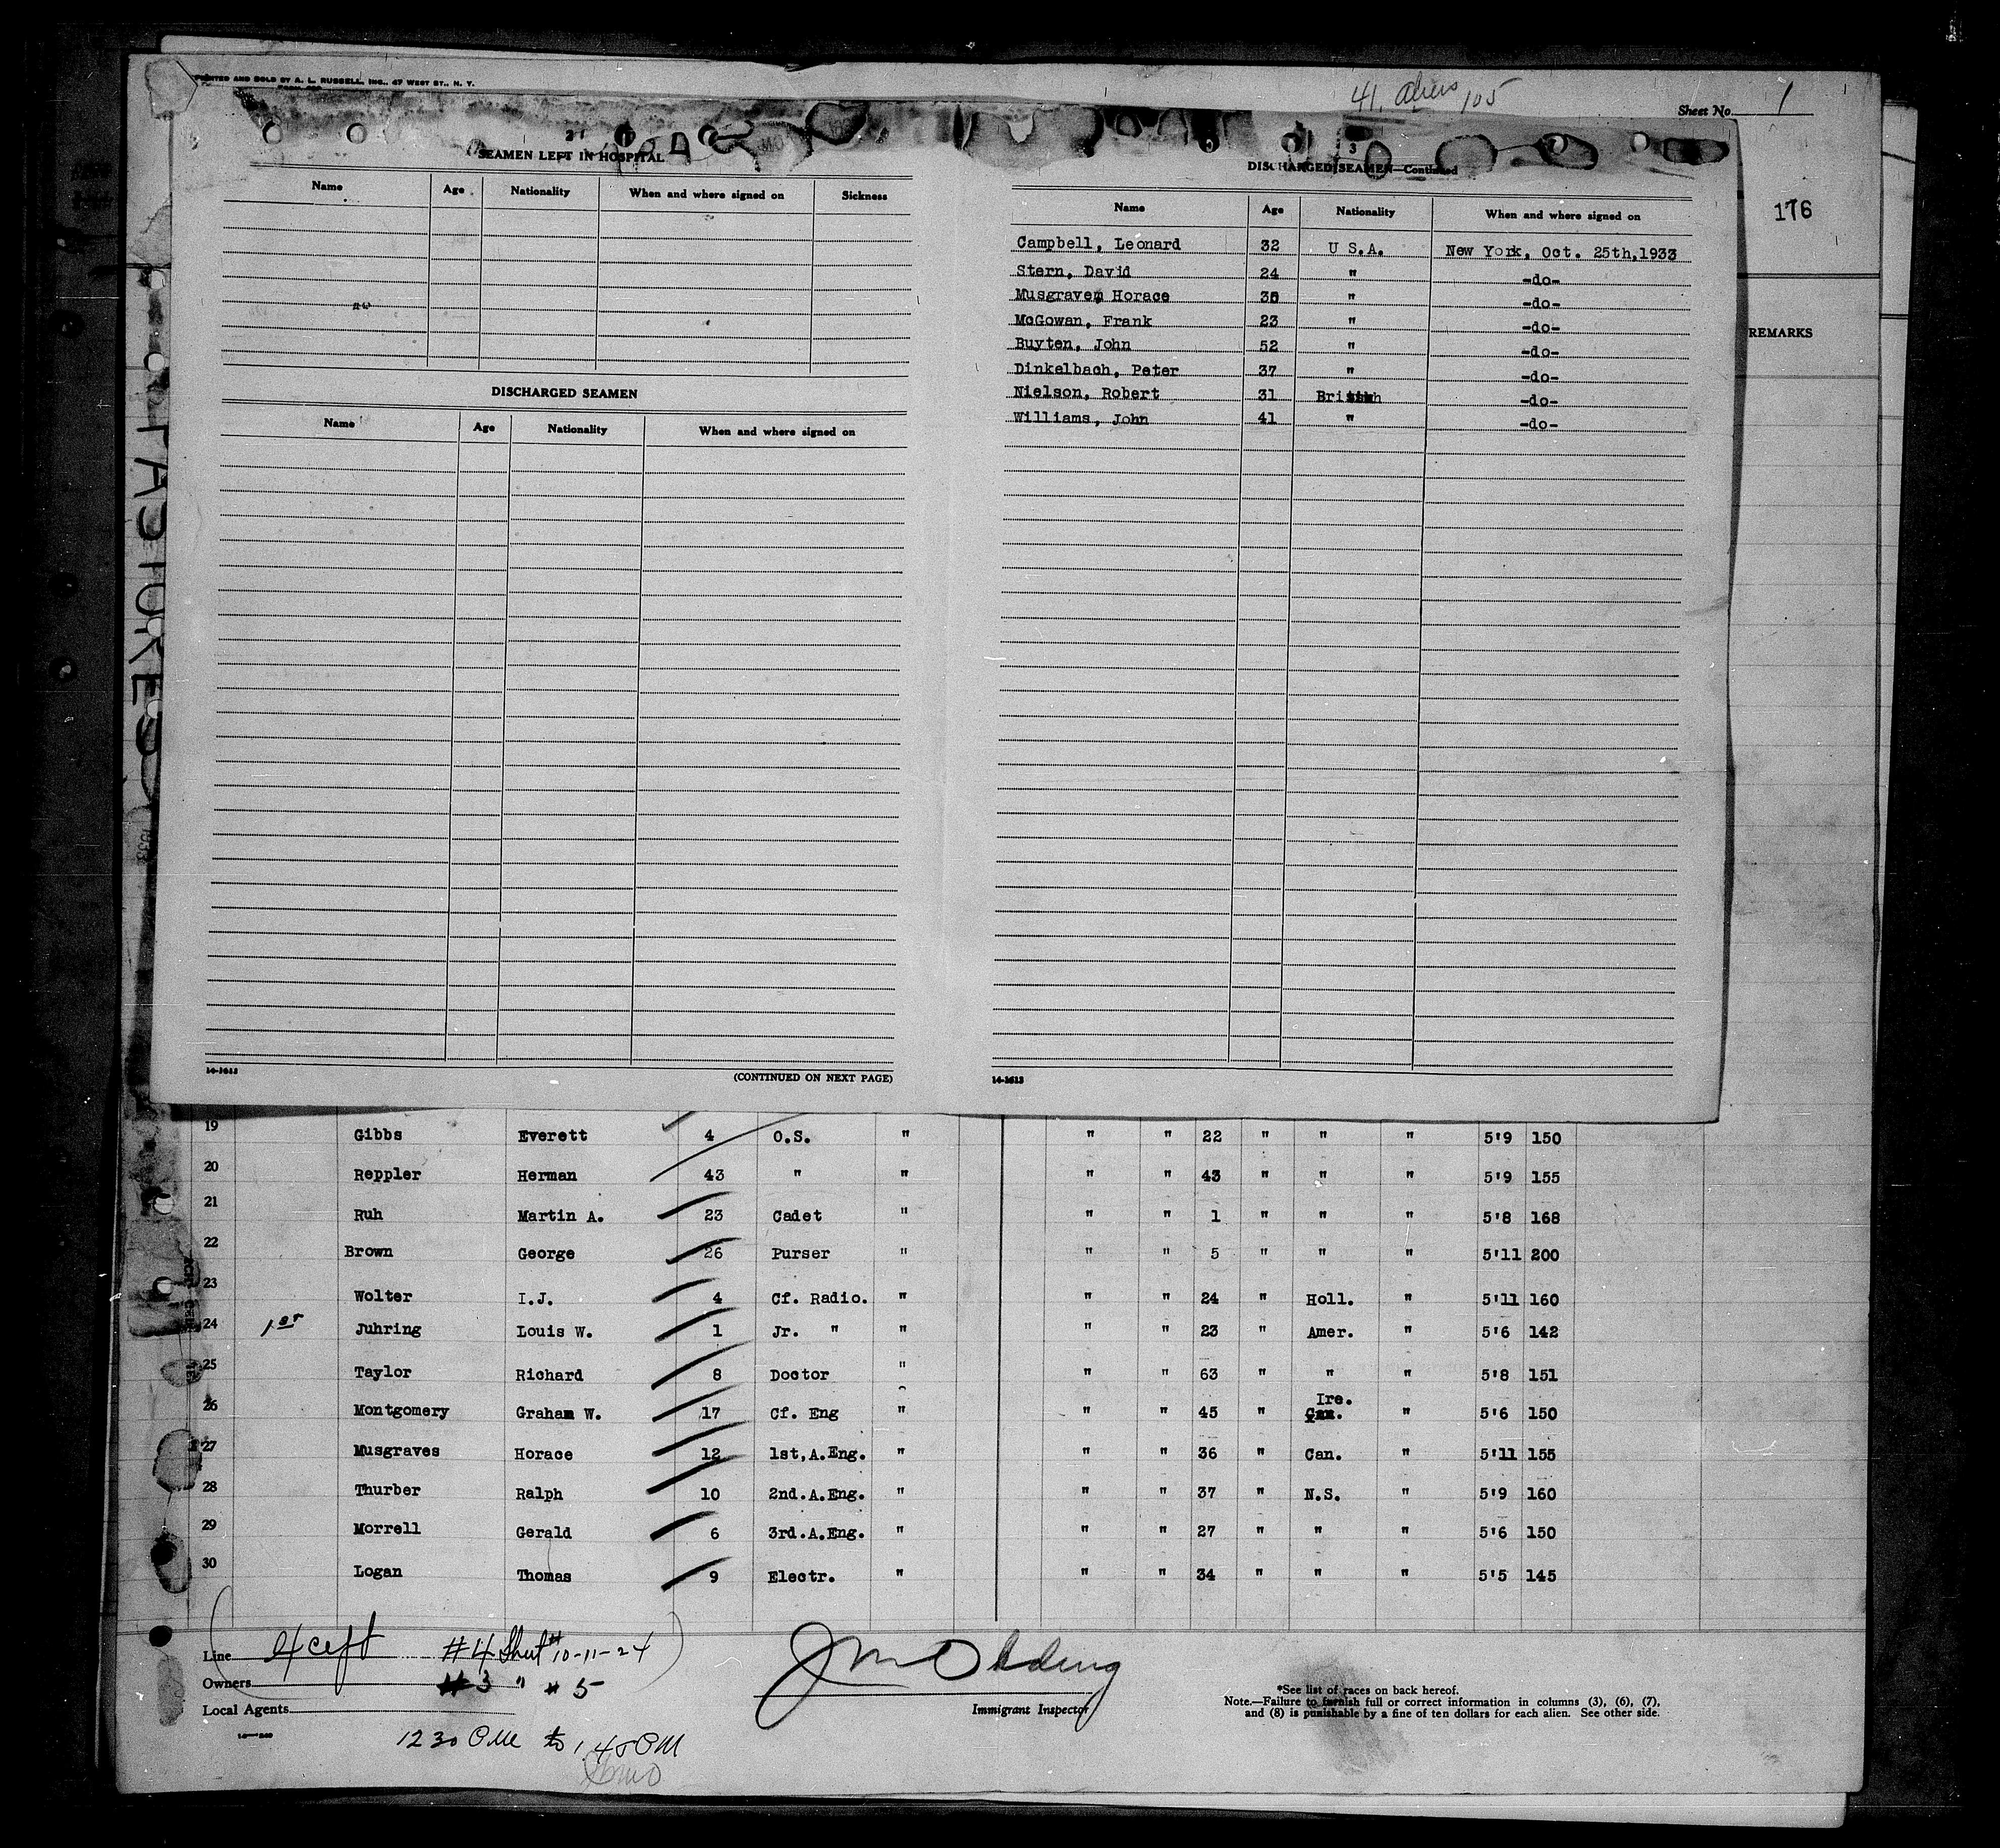 PRINTED AND SOLD BY A. L. RUSSELL, INC., 47 WEST ST., N. Y.
41 aliens 105
Sheet No. 1
176
REMARKS
PASTURES
1933
SEAMEN LEFT IN HOSPITAL
Name Age Nationality When and where signed on Sickness
DISCHARGED SEAMEN
Name Age Nationality When and where signed on
14-1613
(CONTINUED ON NEXT PAGE)
DISCHARGED SEAMEN—Continued
Name Age Nationality When and where signed on
Campbell, Leonard 32 U S.A. New York, Oct. 25th,1933
Stern, David 24 " -do-
Musgravem Horace 36 " -do-
McGowan, Frank 23 " -do-
Buyten, John 52 " -do-
Dinkelbach, Peter 37 " -do-
Nielson, Robert 31 British -do-
Williams, John 41 " -do-
14-1613
19 Gibbs Everett 4 O.S. " " " 22 " " " 5'9 150
20 Reppler Herman 43 " " " " 43 " " " 5'9 155
21 Ruh Martin A. 23 Cadet " " " 1 " " " 5'8 168
22 Brown George 26 Purser " " " 5 " " " 5'11 200
23 Wolter I.J. 4 Cf. Radio. " " " 24 " Holl. " 5'11 160
24 1st Juhring Louis W. 1 Jr. " " " " 23 " Amer. " 5'6 142
25 Taylor Richard 8 Doctor " " " 63 " " " 5'8 151
26 Montgomery Graham W. 17 Cf. Eng " " " 45 " Ire. Can. " 5'6 150
27 Musgraves Horace 12 1st,A.Eng. " " " 36 " Can. " 5'11 155
28 Thurber Ralph 10 2nd.A.Eng. " " " 37 " N.S. " 5'9 160
29 Morrell Gerald 6 3rd.A.Eng. " " " 27 " " " 5'6 150
30 Logan Thomas 9 Electr. " " " 34 " " " 5'5 145
Line except #4 Sheet # 10-11-24
Owners #3 " # 5
Local Agents
1230 PM to 1.45 PM
Immigrant Inspector
*See list of races on back hereof.
Note.—Failure to furnish full or correct information in columns (3), (6), (7),
and (8) is punishable by a fine of ten dollars for each alien. See other side.